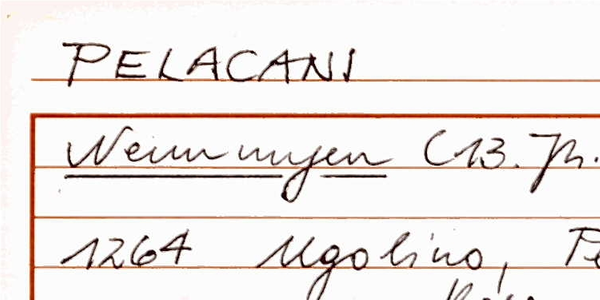 PELACANI
Nennungen (13. Jh.
1264 Ugolino, Pe